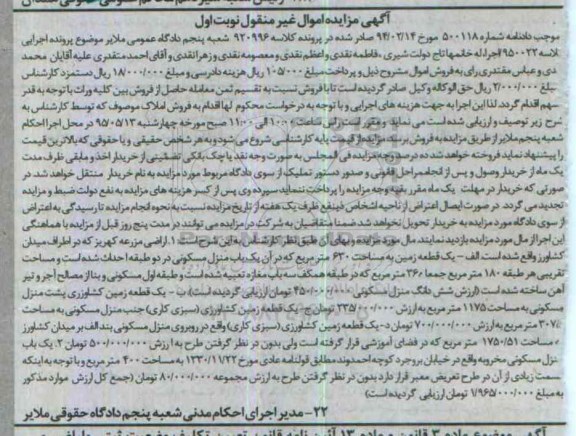 آگهی مزایده اموال غیر منقول نوبت اول
موجب دادنامه شماره ۵۰۰۱۱۸ مورخ ۹۴/۰۲/۱۴ صادر شده در پرونده کلاسه ۹۲۰۹۹۶ شعبه پنجم دادگاه عمومی ملایر موضوع پرونده اجرایی
کلاسه ۹۵۰۰۲۲ اجرا له خانمها تاج دولت شیری، فاطمه نقدی و اعظم نقدی و معصومه نقدی و زهرا نقدی و آقای احمد مقتدری علیه آقایان محمد
نقدی و عباس مقتدری رای به فروش اموال مشروح ذیل و پرداخت مبلغ ۱۰۵/۰۰۰ ریال هزینه دادرسی و مبلغ ۱۸/۰۰۰/۰۰۰ ریال دستمزد کارشناس
۲/۰۰۰/۰۰۰ ریال حق الوکاله وکیل صادر گردیده است تا با فروش نسبت به تقسیم ثمن معامله حاصل از فروش بین کلیه وراث با توجه به قدر
سهم اقدام گردد. لذا این اجرا به جهت هزینه های اجرایی و با توجه به درخواست محکوم لها اقدام به فروش املاک موصوف که توسط کارشناس به
شرح زیر توصیف و ارزیابی شده است می نماید و مقرر است راس ساعت ۱۰:۰۰ الی ۱۱:۰۰ صبح مورخه چهارشنبه ۹۵/۰۵/۱۳ در محل اجرا احکام
شعبه پنجم ملایر از طریق مزایده به فروش برسد. مزایده از قیمت پایه کارشناسی شروع می شود و به هر شخص حقیقی و یا حقوقی که بالاترین قیمت
را پیشنهاد نماید فروخته خواهد شد ده درصد وجه مزایده فی المجلس به صورت وجه نقد یا چک بانکی تضمینی از خریدار اخذ و مابقی ظرف مدت
یک ماه از خریدار وصول و پس از انجام مراحل قانونی و صدور دستور تملیک از سوی دادگاه مربوط مورد مزایده به نام خریدار منتقل خواهد شد. در
صورتی که خریدار در مهلت یک ماه مقرر بقیه وجه مزایده را پرداخت ننماید سپرده وی پس از کسر هزینه های مزایده به نفع دولت ضبط و مزایده
تجدید می گردد. در صورت ایصال اعتراض از ناحیه اشخاص ذینفع ظرف یک هفته از تاریخ مزایده نسبت به نحوه انجام مزایده تا رسیدگی به اعتراض
از سوی دادگاه مورد مزایده به خریدار تحویل نخواهد شد. ضمنا متقاضیان به شرکت در مزایده می توانند در مدت پنج روز قبل از مزایده با هماهنگی
این اجرا از مال مورد مزایده بازدید نمایند. مال مورد مزایده و بهای آن طبق نظر کارشناس به این شرح است ۱. اراضی مزرعه کهریز که در اطراف میدان
کشاورز واقع شده است الف - یک قطعه زمین به مساحت ۶۳۰ متر مربع که در آن یک باب منزل مسکونی در دو طبقه احداث شده است و مساحت
تقریبی هر طبقه ۱۸۰ متر مربع جمعا ۳۶۰ متر مربع که در طبقه همکف سه باب مغازه تعبیه شده است و طبقه اول مسکونی و بنا از مصالح آجر و تیر
آهن ساخته شده است (ارزش شش دانگ منزل مسکونی ۴۵۰/۰۰۰/۰۰۰ تومان ارزیابی گردیده است) ب - یک قطعه زمین کشاورزی پشت منزل
مسکونی به مساحت ۱۱۷۵ متر مربع به ارزش ۲۳۵/۰۰۰/۰۰۰ تومان ج - یک قطعه زمین کشاورزی (سبزی کاری) جنب منزل مسکونی به مساحت
متر مربع به ارزش ۷۰۰/۰۰۰/۰۰۰ تومان د - یک قطعه زمین کشاورزی (سبزی کاری) واقع در روبروی منزل مسکونی بند الف بر میدان کشاورز
مساحت ۱۷۵۰/۵۱ متر مربع که در فضای آموزشی قرار گرفته است ولی بدون در نظر گرفتن طرح به ارزش ۵۰۰/۰۰۰/۰۰۰ تومان ۲. یک باب
منزل مسکونی مخروبه واقع در خیابان بروجرد کوچه احمدوند مطابق قولنامه عادی مورخ ۱۳۳۰/۱۱/۲۲ به مساحت ۴۰۰ متر مربع و با توجه به اینکه
قسمت زیادی از آن در طرح تعریض معبر قرار دارد بدون در نظر گرفتن طرح به ارزش مجموعه ۸۰/۰۰۰/۰۰۰ تومان (جمع کل ارزش موارد مذکور
به مبلغ ۱/۹۶۵/۰۰۰/۰۰۰ تومان ارزیابی گردیده است)
۲۲ - مدیر اجرای احکام مدنی شعبه پنجم دادگاه حقوقی ملایر